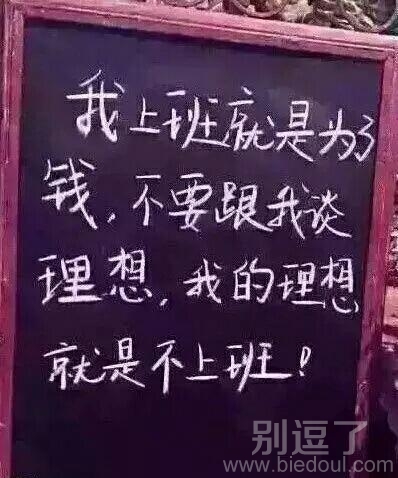 我上班就是为了
钱，不要跟我谈
理想，我的理想
就是不上班！
别逗了
www.biedoul.com